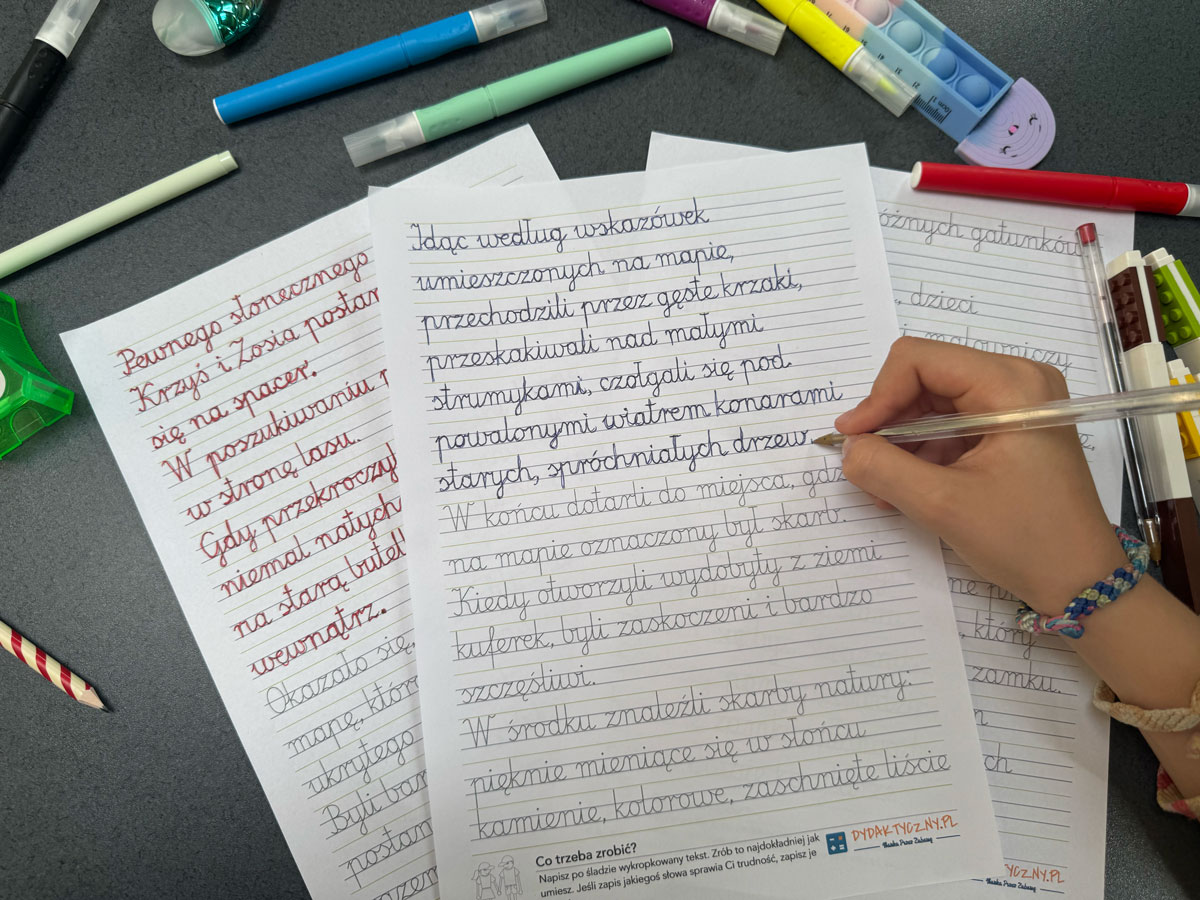 Pewnego słonecznego
Krzyś i Zosia postan
się na spacer.
W poszukiwaniu
w stronę lasu.
Gdy przekroczyl
niemal natych
na starą butel
wewnątrz.
Okazało się,
mapę, któr
ukrytego
Byli bar
postan
Idąc według wskazówek
umieszczonych na mapie,
przechodzili przez gęste krzaki,
przeskakiwali nad małymi
strumykami, czołgali się pod
powalonymi wiatrem konarami
starych, spróchniałych drzew.
W końcu dotarli do miejsca, gdz
na mapie oznaczony był skarb.
Kiedy otworzyli wydobyty z ziemi
kuferek, byli zaskoczeni i bardzo
szczęśliwi.
W środku znaleźli skarby natury:
pięknie mieniące się w słońcu
kamienie, kolorowe, zaschnięte liście
Co trzeba zrobić?
Napisz po śladzie wykropkowany tekst. Zrób to najdokładniej jak
umiesz. Jeśli zapis jakiegoś słowa sprawia Ci trudność, zapisz je
DYDAKTYCZNY.PL
Nauka Przez Zabawę
óżnych gatunków
, dzieci
i malowniczy
, któr
zamku.
ch
YCZNY.PL
Nauka Przez Zabawę